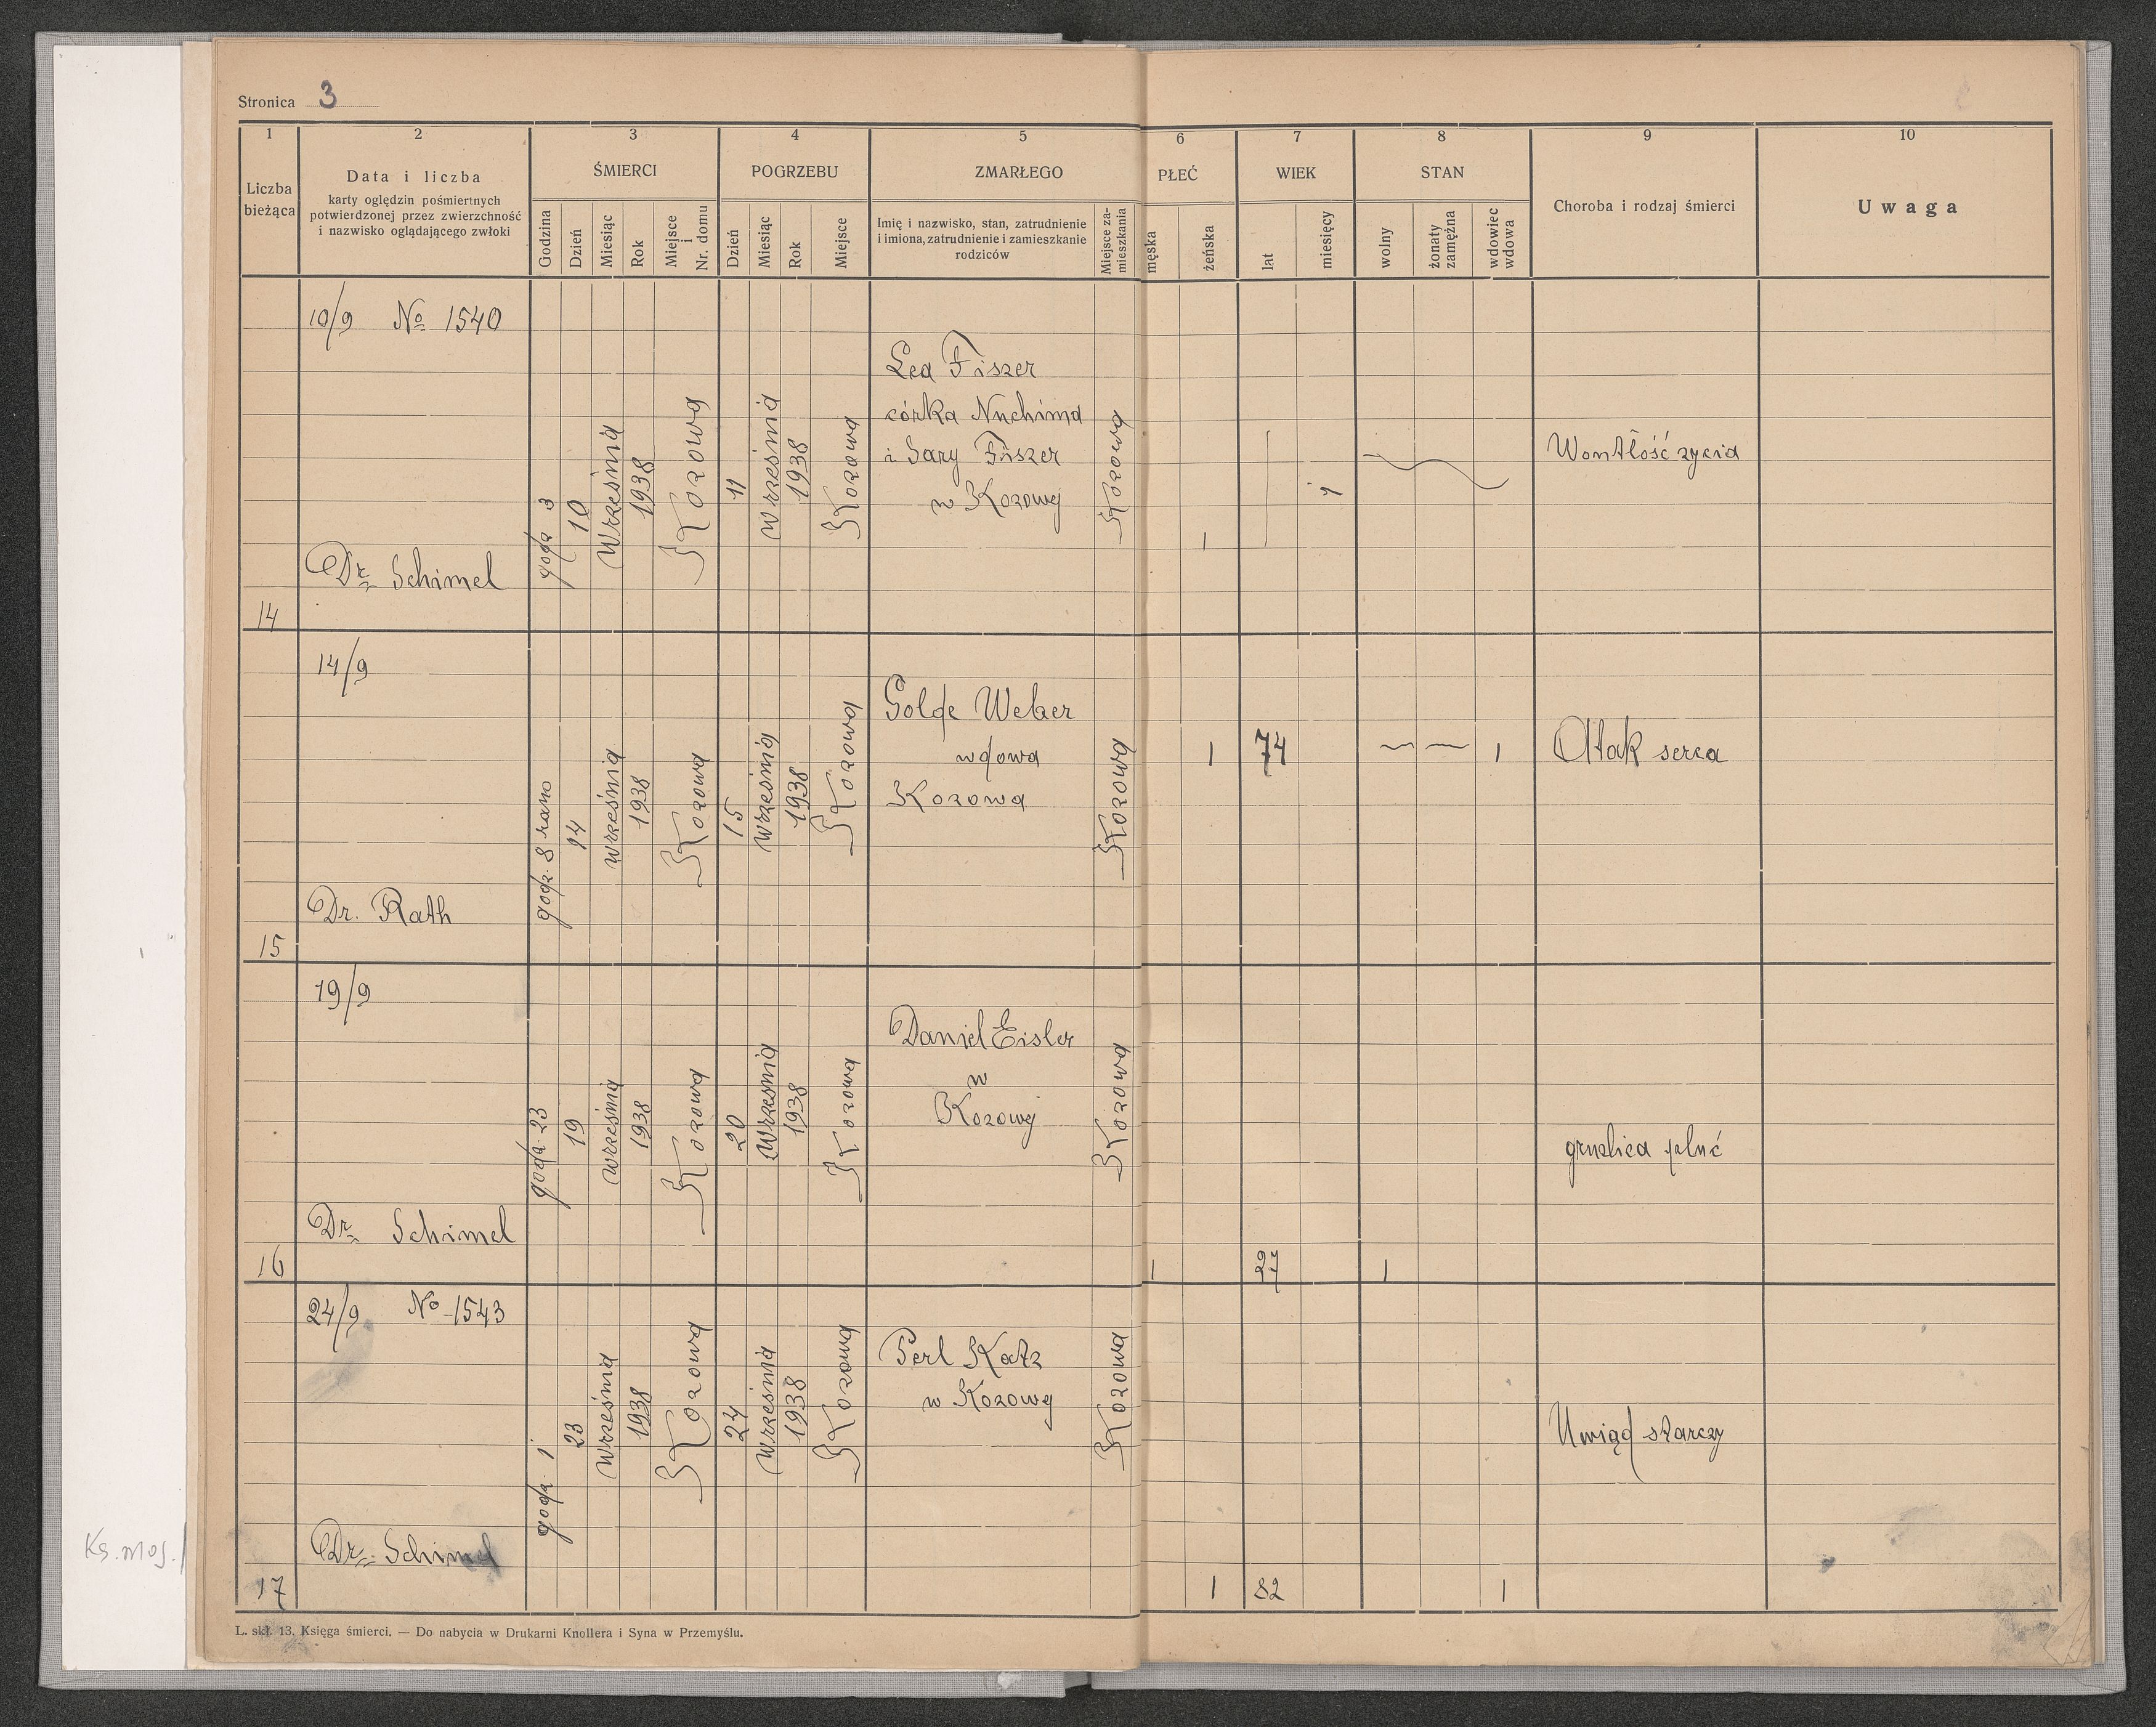 Stronica 3
1 2 3 4 5 6 7 8 9 10
Liczba bieżąca
Data i liczba
karty oględzin pośmiertnych
potwierdzonej przez zwierzchność
i nazwisko oglądającego zwłoki
ŚMIERCI
Godzina
Dzień
Miesiąc
Rok
Miejsce i Nr. domu
POGRZEBU
Dzień
Miesiąc
Rok
Miejsce
ZMARŁEGO
Imię i nazwisko, stan, zatrudnienie
i imiona, zatrudnienie i zamieszkanie
rodziców
Miejsce za-
mieszkania
PŁEĆ
męska
żeńska
WIEK
lat
miesięcy
STAN
wolny
żonaty zamężna
wdowiec wdowa
Choroba i rodzaj śmierci
Uwaga
14
10/9 No 1540
Dr Schimel
godz 3
10
Września
1938
Kozowa
11
Września
1938
Kozowa
Lea Fiszer
córka Nuchima
i Sary Fiszer
w Kozowej
Kozowa
1
Wontłość zycia
15
14/9
Dr. Rath
godz. 8 rano
14
września
1938
Kozowa
15
Września
1938
Kozowa
Golde Weber
wdowa
Kozowa
Kozowa
1
74
— — 1
Atak serca
16
19/9
Dr Schimel
godz. 23
19
września
1938
Kozowa
20
Września
1938
Kozowa
Daniel Eisler
w
Kozowej
Kozowa
1
27
1
gruzlica płuć
17
24/9 No 1543
Dr. Schimel
godz. 1
23
Września
1938
Kozowa
24
Września
1938
Kozowa
Perl Katz
w Kozowej
Kozowa
1
82
1
Uwiąd starczy
L. skł. 13. Księga śmierci. — Do nabycia w Drukarni Knollera i Syna w Przemyślu.
Ks. moj.